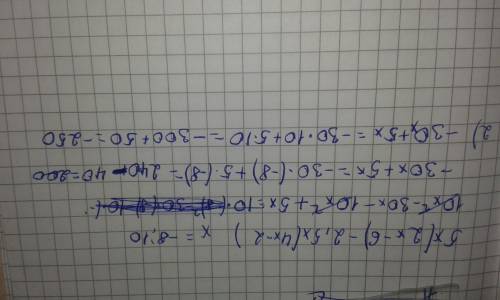 5x(2x-6)-2,5x(4x-2) x=-8;10
10x²-30x-10x²+5x=
-30x+5x=-30·(-8)+5·(-8)=240-40=200
2) -30x+5x=-30·10+5·10=-300+50=-250